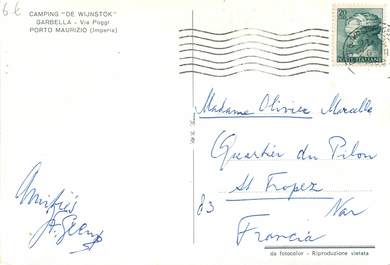 6 €
CAMPING "DE WIJNSTOK"
GARBELLA - Via Poggi
PORTO MAURIZIO (Imperia)
20
POSTE ITALIANE
Madame Olivier Marcelle
Quartier du Pilon
St Tropez
83 Var
Francia
Amitiés
da fotocolor - Riproduzione vietata